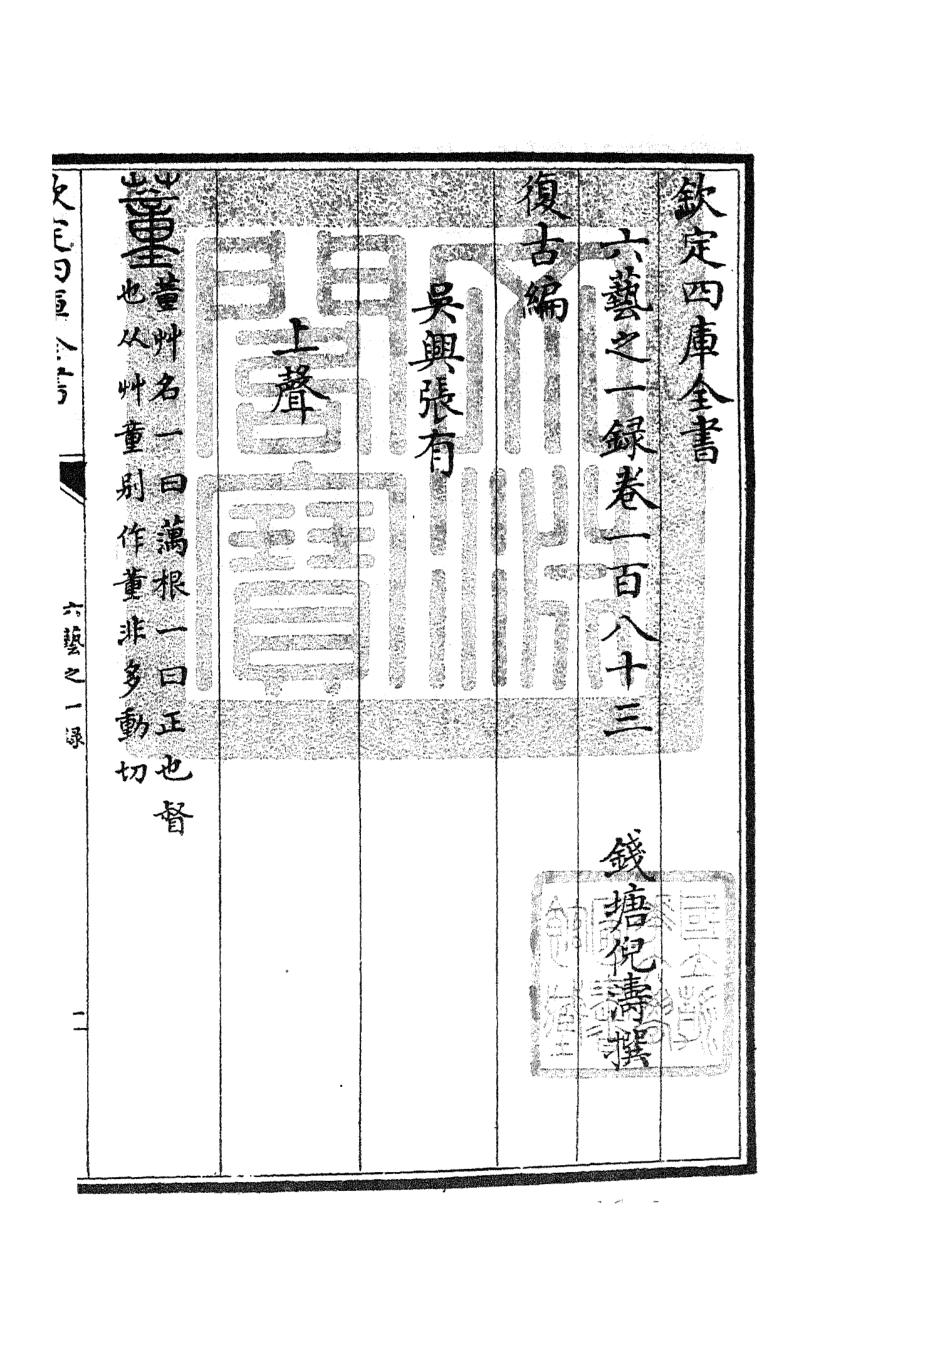 欽定四庫全書
六藝之一録卷一百八十三　錢塘倪濤撰
復古編
吳興張有
上聲
蕫
蕫艸名一曰蕅根一曰正也督
也从艸童别作董非多動切
欽定四庫全書
六藝之一録
文淵閣寶